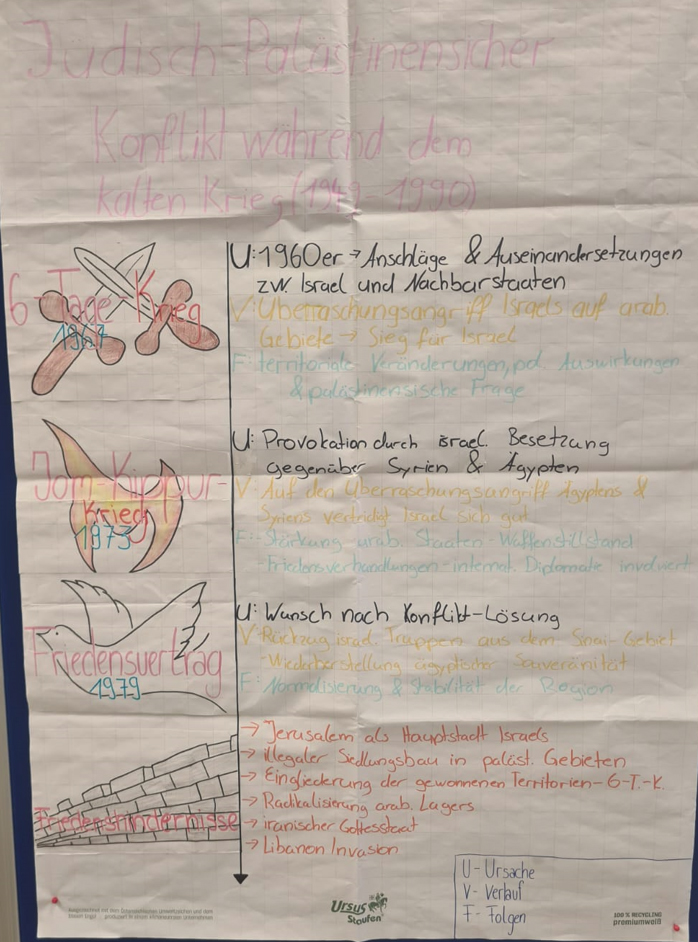 Jüdisch-Palästinensischer
Konflikt während dem
kalten Krieg (1949-1990)
6-Tage-Krieg
1967
U: 1960er → Anschläge & Auseinandersetzungen
zw. Israel und Nachbarstaaten
V: Überraschungsangriff Israels auf arab.
Gebiete → Sieg für Israel
F: territoriale Veränderungen, pol. Auswirkungen
& palästinensische Frage
Jom-Kippur-
Krieg
1973
U: Provokation durch israel. Besetzung
gegenüber Syrien & Ägypten
V: Auf den Überraschungsangriff Ägyptens &
Syriens verteidigt Israel sich gut
F: Stärkung arab. Staaten - Waffenstillstand
- Friedensverhandlungen - internat. Diplomatie involviert
Friedensvertrag
1979
U: Wunsch nach Konflikt-Lösung
V: Rückzug israel. Truppen aus dem Sinai-Gebiet
- Wiederherstellung ägyptischer Souveränität
F: Normalisierung & Stabilität der Region
Friedenshindernisse
→ Jerusalem als Hauptstadt Israels
→ illegaler Siedlungsbau in paläst. Gebieten
→ Eingliederung der gewonnenen Territorien - 6-T.-K.
→ Radikalisierung arab. Lagers
→ iranischer Gottesstaat
→ Libanon Invasion
U - Ursache
V - Verlauf
F - Folgen
Ursus
Staufen
100 % RECYCLING
premiumweiß